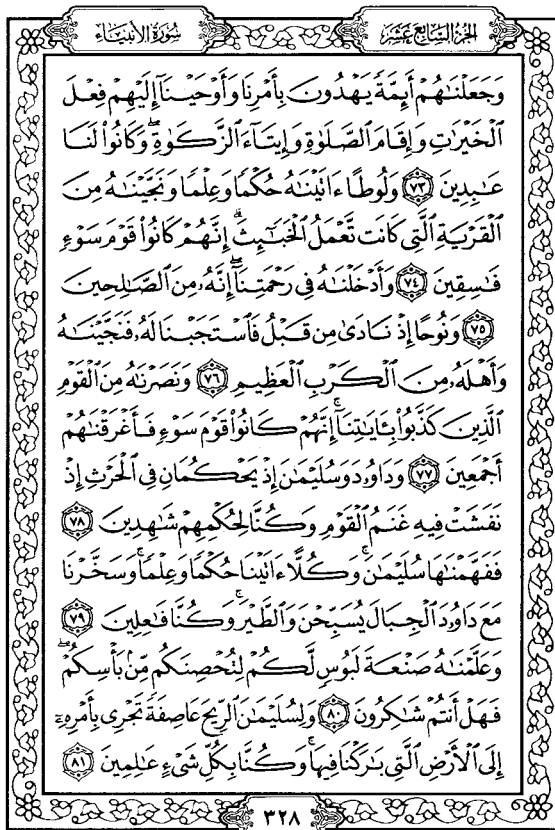 الجزء السابع عشر
سورة الأنبياء
وَجَعَلْنَٰهُمْ أَئِمَّةً يَهْدُونَ بِأَمْرِنَا وَأَوْحَيْنَآ إِلَيْهِمْ فِعْلَ
ٱلْخَيْرَٰتِ وَإِقَامَ ٱلصَّلَوٰةِ وَإِيتَآءَ ٱلزَّكَوٰةِ ۖ وَكَانُوا۟ لَنَا
عَٰبِدِينَ ٧٣ وَلُوطًا ءَاتَيْنَٰهُ حُكْمًا وَعِلْمًا وَنَجَّيْنَٰهُ مِنَ
ٱلْقَرْيَةِ ٱلَّتِى كَانَت تَّعْمَلُ ٱلْخَبَٰٓئِثَ ۗ إِنَّهُمْ كَانُوا۟ قَوْمَ سَوْءٍ
فَٰسِقِينَ ٧٤ وَأَدْخَلْنَٰهُ فِى رَحْمَتِنَآ ۖ إِنَّهُۥ مِنَ ٱلصَّٰلِحِينَ
٧٥ وَنُوحًا إِذْ نَادَىٰ مِن قَبْلُ فَٱسْتَجَبْنَا لَهُۥ فَنَجَّيْنَٰهُ
وَأَهْلَهُۥ مِنَ ٱلْكَرْبِ ٱلْعَظِيمِ ٧٦ وَنَصَرْنَٰهُ مِنَ ٱلْقَوْمِ
ٱلَّذِينَ كَذَّبُوا۟ بِـَٔايَٰتِنَآ ۚ إِنَّهُمْ كَانُوا۟ قَوْمَ سَوْءٍ فَأَغْرَقْنَٰهُمْ
أَجْمَعِينَ ٧٧ وَدَاوُۥدَ وَسُلَيْمَٰنَ إِذْ يَحْكُمَانِ فِى ٱلْحَرْثِ إِذْ
نَفَشَتْ فِيهِ غَنَمُ ٱلْقَوْمِ وَكُنَّا لِحُكْمِهِمْ شَٰهِدِينَ ٧٨
فَفَهَّمْنَٰهَا سُلَيْمَٰنَ ۚ وَكُلًّا ءَاتَيْنَا حُكْمًا وَعِلْمًا ۚ وَسَخَّرْنَا
مَعَ دَاوُۥدَ ٱلْجِبَالَ يُسَبِّحْنَ وَٱلطَّيْرَ ۚ وَكُنَّا فَٰعِلِينَ ٧٩
وَعَلَّمْنَٰهُ صَنْعَةَ لَبُوسٍ لَّكُمْ لِتُحْصِنَكُم مِّنۢ بَأْسِكُمْ ۖ
فَهَلْ أَنتُمْ شَٰكِرُونَ ٨٠ وَلِسُلَيْمَٰنَ ٱلرِّيحَ عَاصِفَةً تَجْرِى بِأَمْرِهِۦٓ
إِلَى ٱلْأَرْضِ ٱلَّتِى بَٰرَكْنَا فِيهَا ۚ وَكُنَّا بِكُلِّ شَىْءٍ عَٰلِمِينَ ٨١
٣٢٨